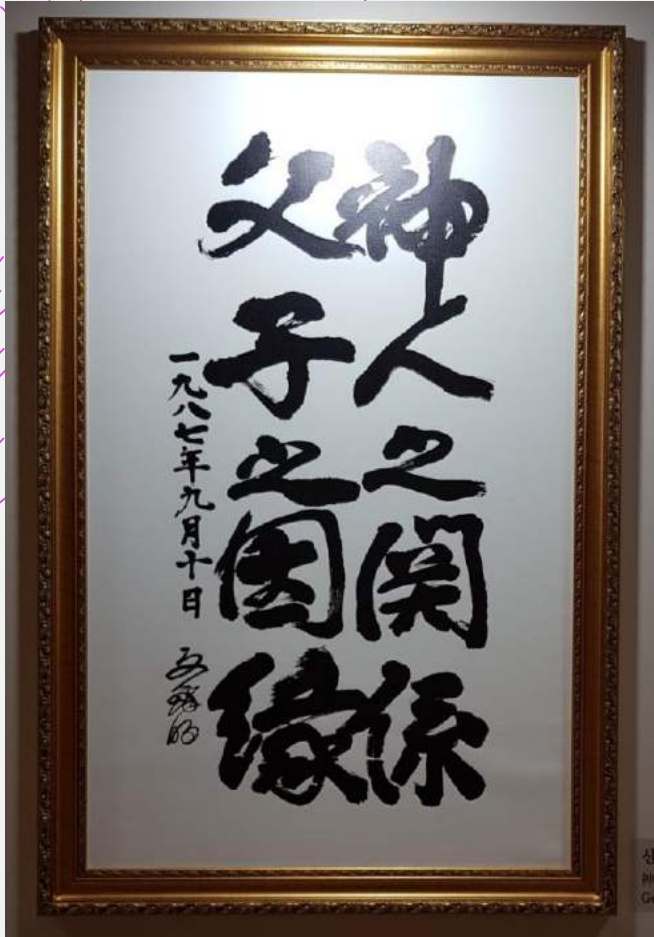 神人之関係
父子之因緣
一九八七年九月十日 文鮮明